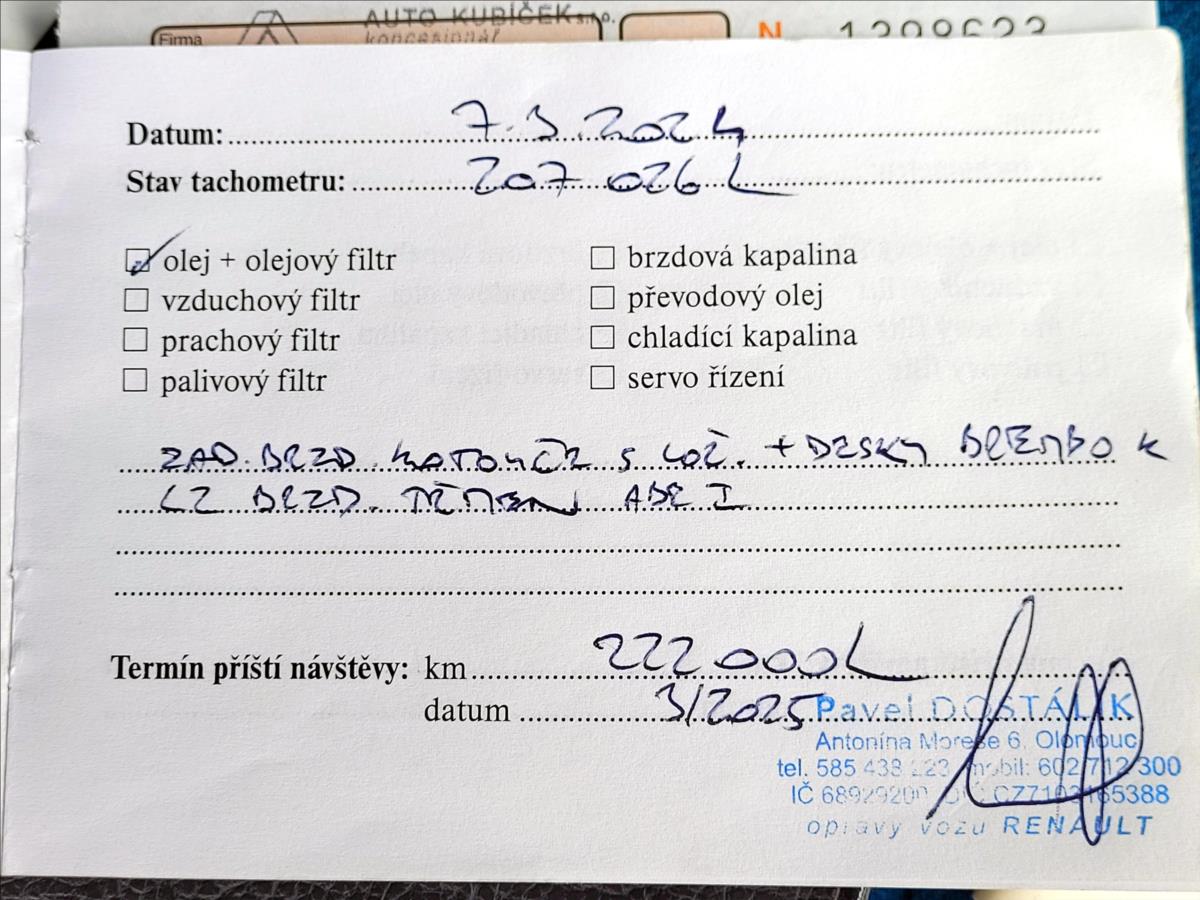 AUTO KUBÍČEK s.r.o.
Firma
koncesionář
N 1209623
Datum: 7.3.2024
Stav tachometru: 207 026
olej + olejový filtr
vzduchový filtr
prachový filtr
palivový filtr
brzdová kapalina
převodový olej
chladící kapalina
servo řízení
ZAD. BRZD. KOTOUČE S LOŽ. + DESKY BREMBO K
LZ BRZD. TŘMEN
Termín příští návštěvy: km 222 000
datum 3/2025
Pavel DOSTÁLÍK
Antonína Morese 6, Olomouc
tel. 585 438 223 mobil: 602 712 300
IČ 68929200, DIČ CZ7103165388
opravy vozu RENAULT